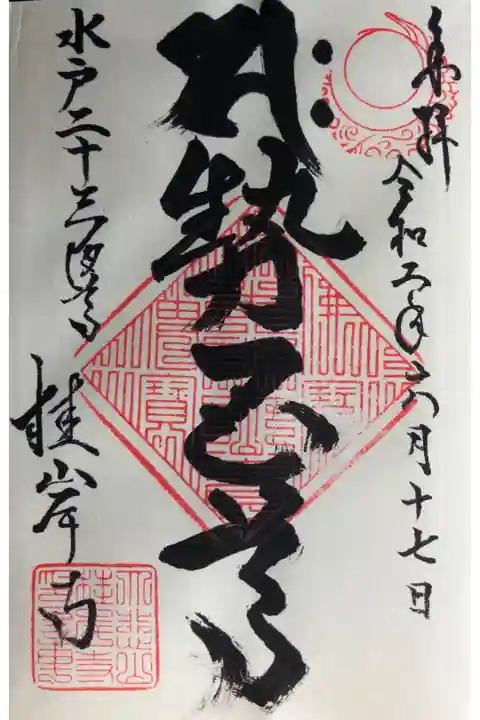 奉拝
令和二年六月十七日
勢至尊
水戸二十三夜尊
桂岸寺